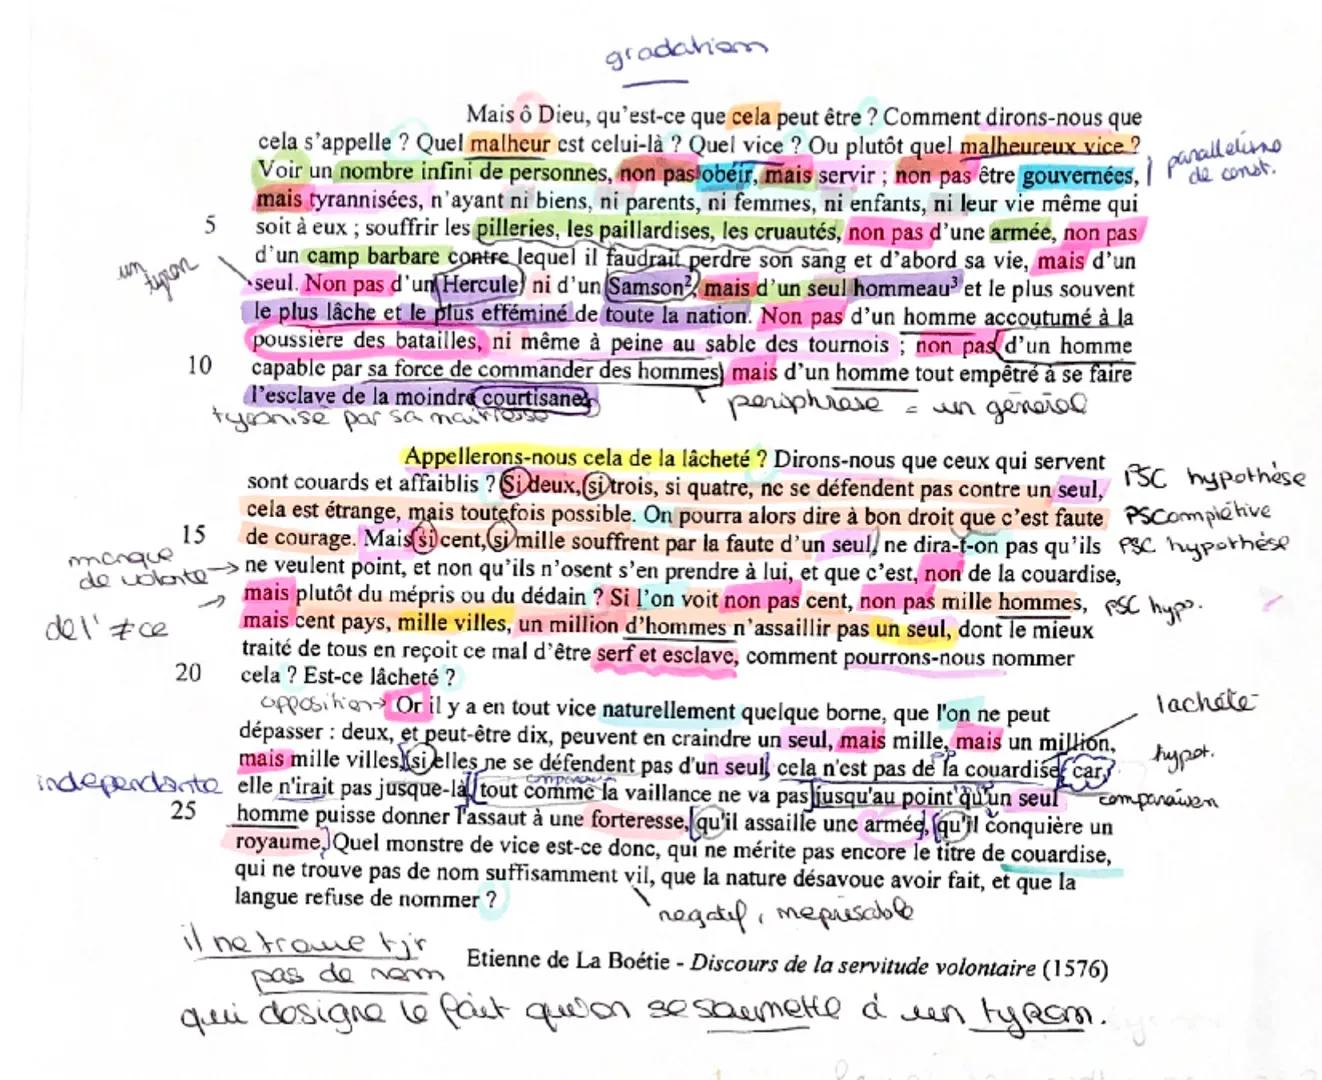 gradation
Mais ô Dieu, qu'est-ce que cela peut être ? Comment dirons-nous que
cela s'appelle ? Quel malheur est celui-là ? Quel vice ? Ou plutôt quel malheureux vice ?
parallelisme
de const.
Voir un nombre infini de personnes, non pas obéir, mais servir ; non pas être gouvernées,
mais tyrannisées, n'ayant ni biens, ni parents, ni femmes, ni enfants, ni leur vie même qui
5 soit à eux ; souffrir les pilleries, les paillardises, les cruautés, non pas d'une armée, non pas
d'un camp barbare contre lequel il faudrait perdre son sang et d'abord sa vie, mais d'un
un
tyran
seul. Non pas d'un Hercule ni d'un Samson², mais d'un seul hommeau³ et le plus souvent
le plus lâche et le plus efféminé de toute la nation. Non pas d'un homme accoutumé à la
poussière des batailles, ni même à peine au sable des tournois ; non pas d'un homme
10 capable par sa force de commander des hommes, mais d'un homme tout empêtré à se faire
l'esclave de la moindre courtisane.
tyranisé par sa maitresse
periphrase = un général
Appellerons-nous cela de la lâcheté ? Dirons-nous que ceux qui servent
sont couards et affaiblis ? Si deux, si trois, si quatre, ne se défendent pas contre un seul,
PSC hypothèse
cela est étrange, mais toutefois possible. On pourra alors dire à bon droit que c'est faute
PSComplétive
15 de courage. Mais si cent, si mille souffrent par la faute d'un seul, ne dira-t-on pas qu'ils
PSC hypothèse
manque
de volonte → ne veulent point, et non qu'ils n'osent s'en prendre à lui, et que c'est, non de la couardise,
mais plutôt du mépris ou du dédain ? Si l'on voit non pas cent, non pas mille hommes,
PSC hypo.
de l' ≠ce
mais cent pays, mille villes, un million d'hommes n'assaillir pas un seul, dont le mieux
traité de tous en reçoit ce mal d'être serf et esclave, comment pourrons-nous nommer
20 cela ? Est-ce lâcheté ?
opposition → Or il y a en tout vice naturellement quelque borne, que l'on ne peut
lacheté
dépasser : deux, et peut-être dix, peuvent en craindre un seul, mais mille, mais un million,
mais mille villes, si elles ne se défendent pas d'un seul, cela n'est pas de la couardise, car,
hypot.
independante elle n'irait pas jusque-là, tout comme la vaillance ne va pas jusqu'au point qu'un seul
comparaison
comparaison
25 homme puisse donner l'assaut à une forteresse, qu'il assaille une armée, qu'il conquière un
royaume. Quel monstre de vice est-ce donc, qui ne mérite pas encore le titre de couardise,
qui ne trouve pas de nom suffisamment vil, que la nature désavoue avoir fait, et que la
langue refuse de nommer ?
negatif, meprisable
il ne trouve tjr
pas de nom
Etienne de La Boétie - Discours de la servitude volontaire (1576)
qui designe le fait qu'on se soumette à un tyran.